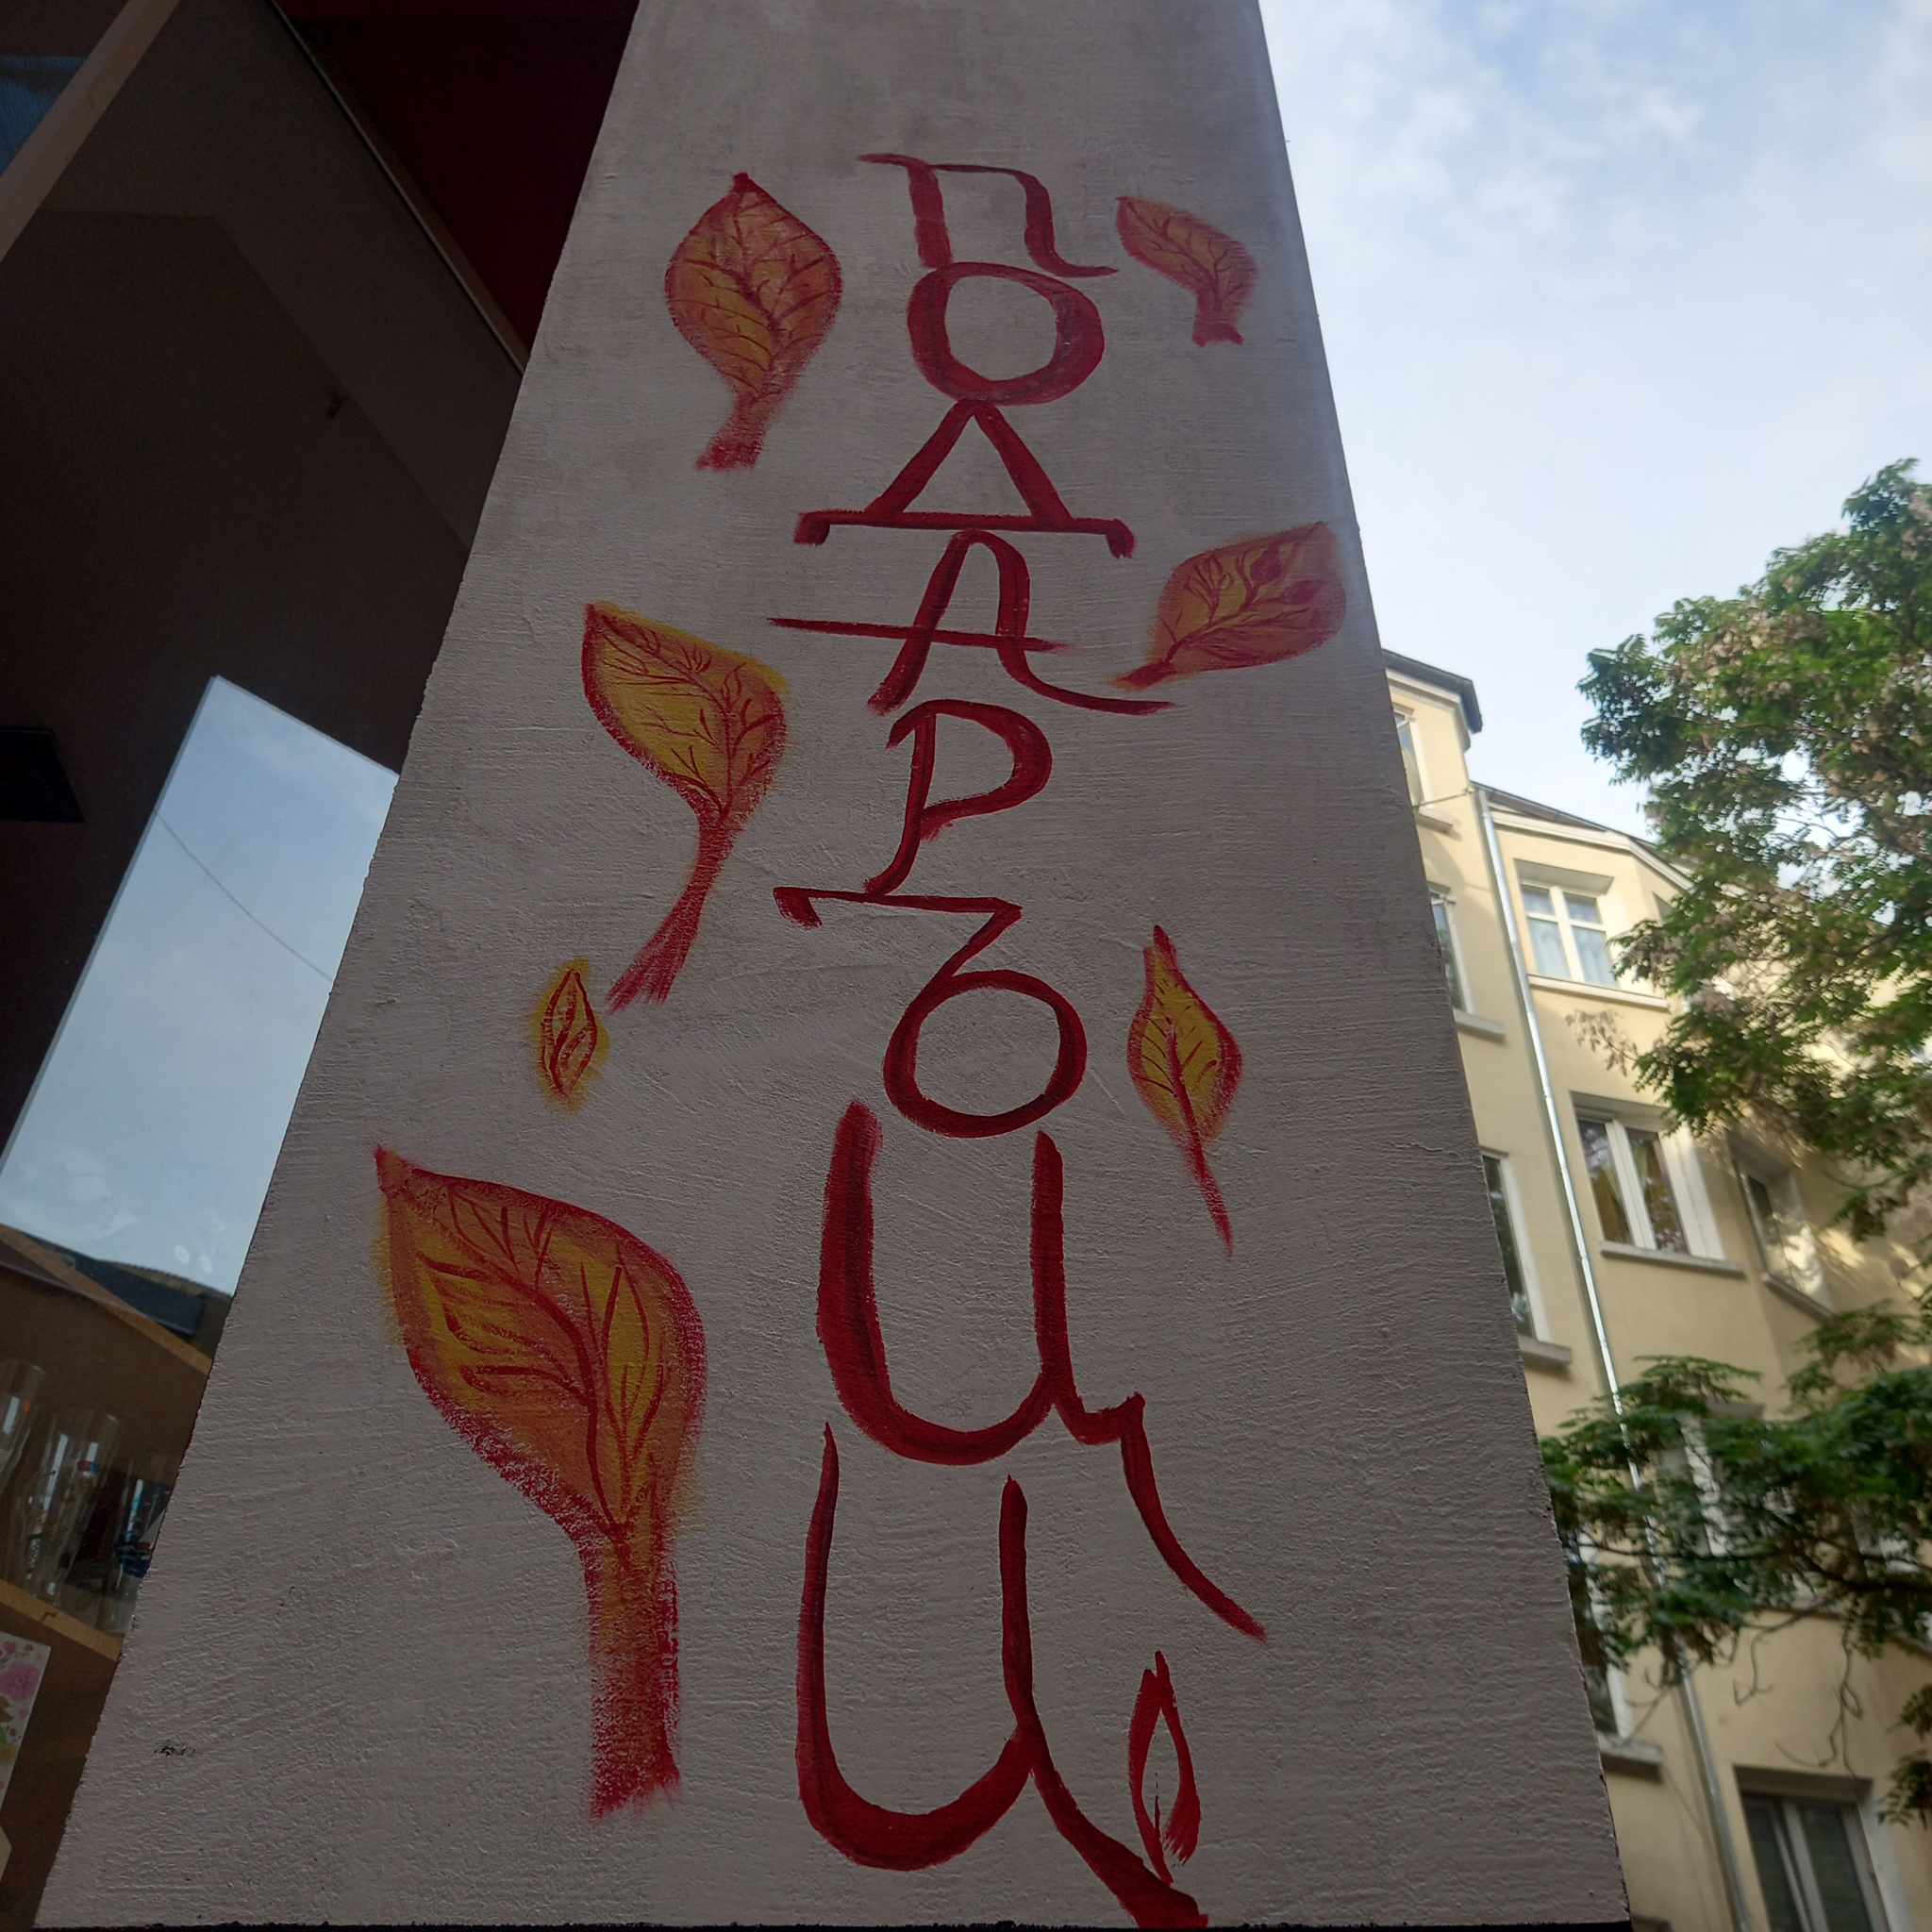 ПОДАРЪЦИ